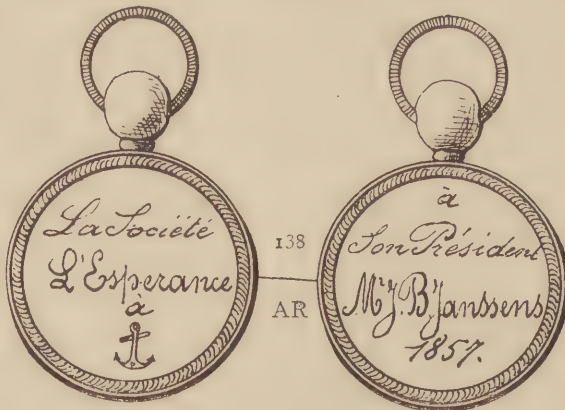 La Société
L'Esperance
à
138
AR
à
Son Président
Mr J. Bt Janssens
1857.